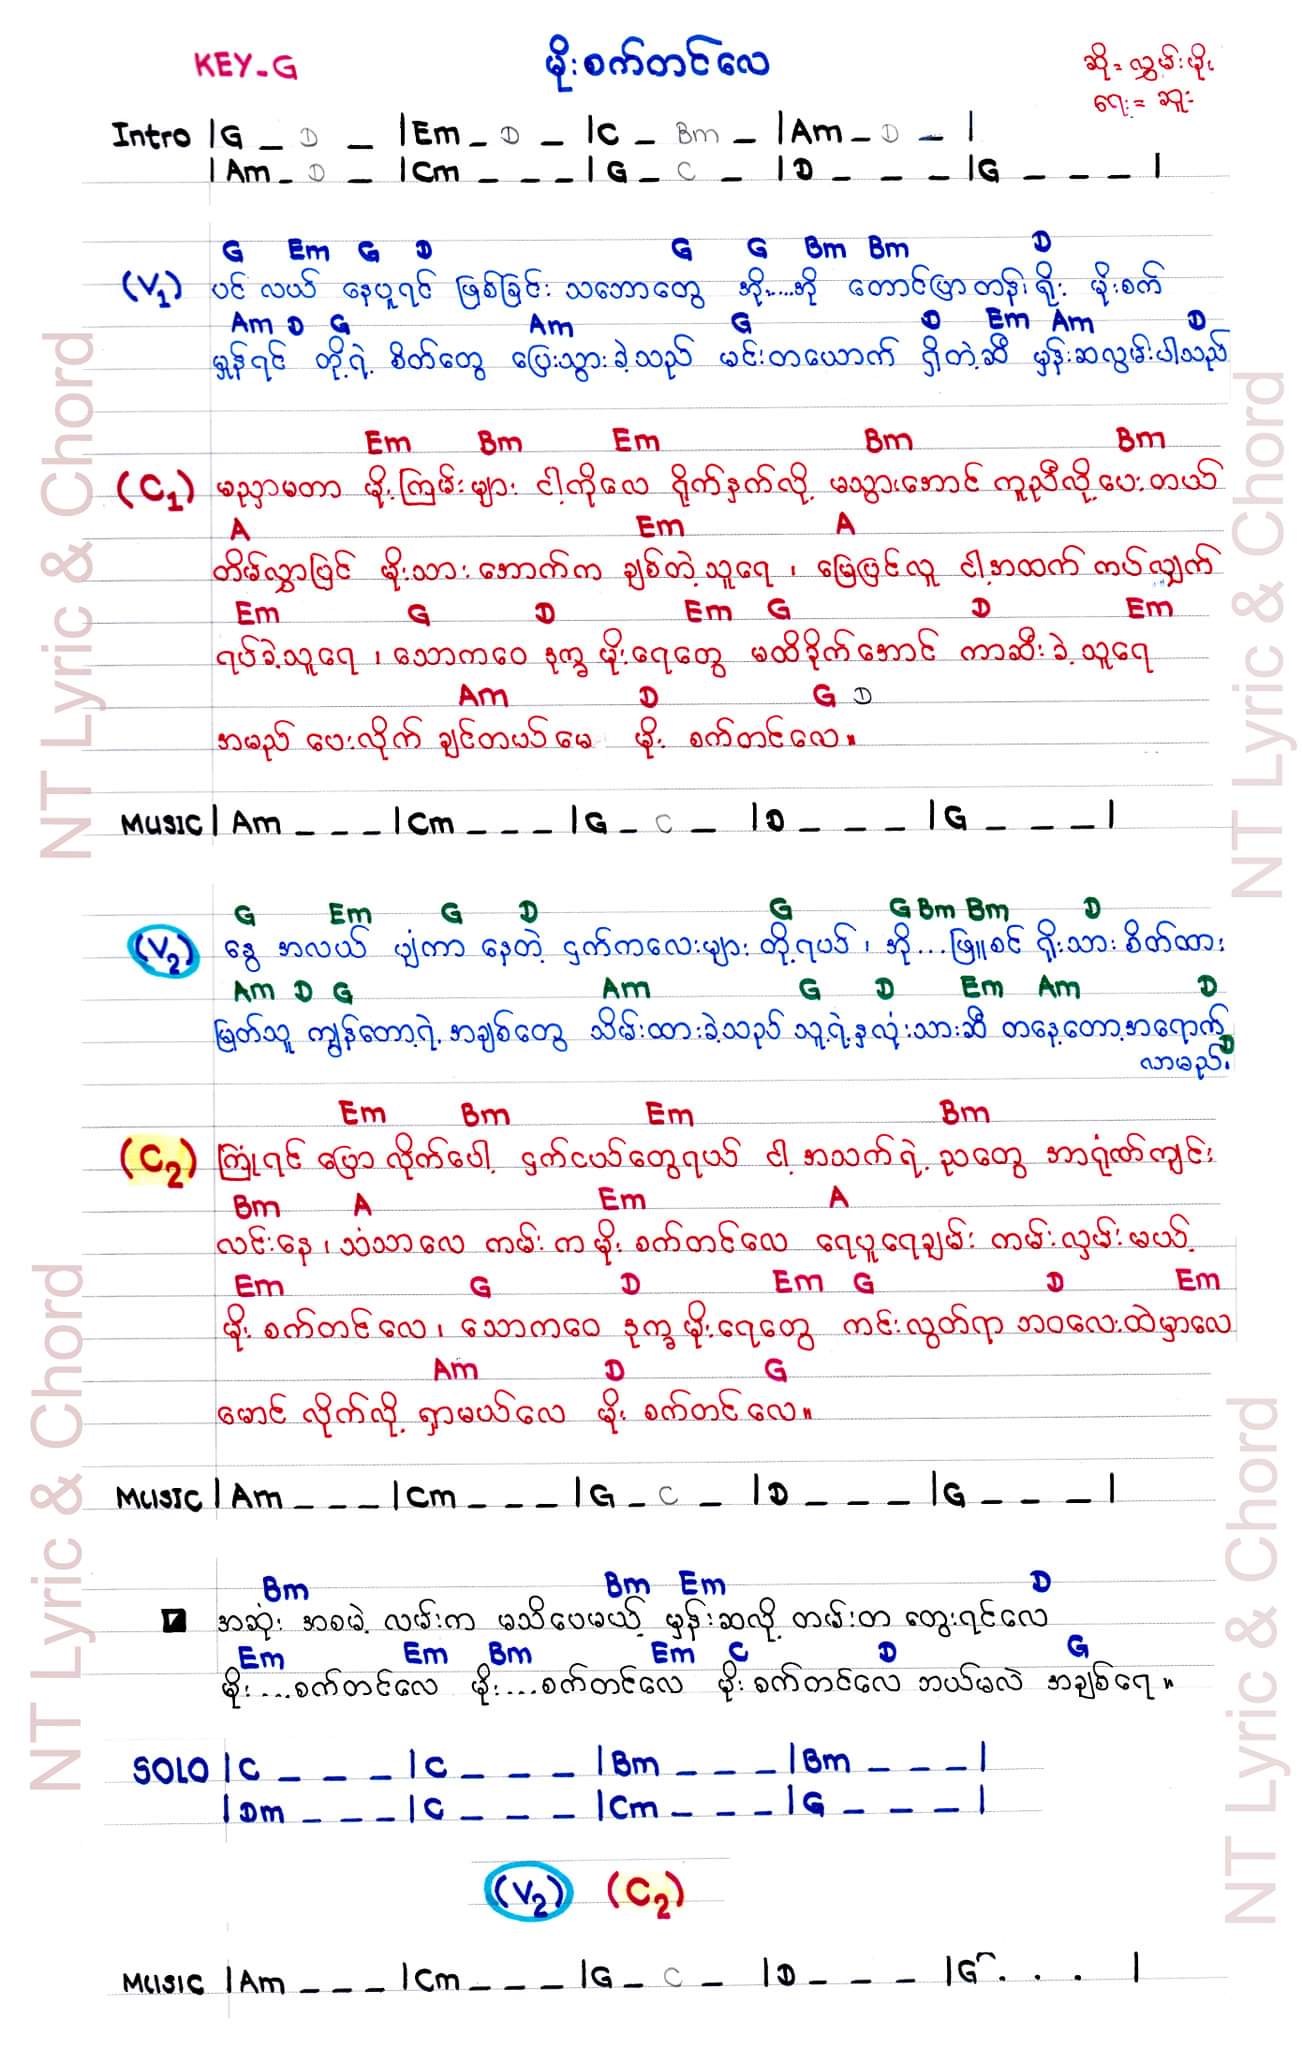 KEY-G
မိုးစက်တင်လေ
ဆို = လွှမ်းမိုး
ရေး = ဆူး
Intro |G _ D _ |Em _ D _ |C _ Bm _ |Am _ D _ |
|Am _ D _ |Cm _ _ _ |G _ C _ |D _ _ _ |G _ _ _ |
G Em G D G G Bm Bm D
(V1) ပင်လယ် နေပူရင် ဖြစ်ခြင်း သဘောတွေ အို.....အို တောင်ပြာတန်းရိုး မိုးစက်
Am D G Am G D Em Am D
မှုန်ရင် တို့ရဲ့ စိတ်တွေ ပြေးသွားခဲ့သည် မင်းတယောက် ရှိတဲ့ဆီ မှန်းဆလွမ်းပါသည်
Em Bm Em Bm Bm
(C1) မညှာမတာ မိုးကြမ်းများ ငါ့ကိုလေ ရိုက်နှက်လို့ မသွားအောင် ကူညီလို့ပေးတယ်
A Em A
တိမ်လွှာပြင် မိုးသားအောက်က ချစ်တဲ့သူရေ ၊ မြေပြင်လူ ငါ့အထက် ကပ်လျှက်
Em G D Em G D Em
ရပ်ခဲ့သူရေ ၊ သောကဝေ ဒုက္ခ မိုးရေတွေ မထိခိုက်အောင် ကာဆီးခဲ့သူရေ
Am D G D
အမည် ပေးလိုက် ချင်တယ်မေ မိုး စက်တင်လေ။
MUSIC |Am _ _ _ |Cm _ _ _ |G _ C _ |D _ _ _ |G _ _ _ |
G Em G D G G Bm Bm D
(V2) နွေ အလယ် ပျံကာ နေတဲ့ ငှက်ကလေးများ တို့ရယ် ၊ အို...ဖြူစင် ရိုးသား စိတ်ထား
Am D G Am G D Em Am D
မြတ်သူ ကျွန်တော့ရဲ့ အချစ်တွေ သိမ်းထားခဲ့သည် သူ့ရဲ့နှလုံးသားဆီ တနေ့တော့အရောက်
D
လာမည်.
Em Bm Em Bm
(C2) ကြုံရင် ပြောလိုက်ပေါ့ ငှက်ငယ်တွေရယ် ငါ့ အသက်ရဲ့ ညတွေ အာရုံဏ်ကျင်း
Bm A Em A
လင်းနေ ၊ သံသာလေ ကမ်းက မိုး စက်တင်လေ ရေပူရေချမ်း ကမ်းလှမ်းမယ့်
Em G D Em G D Em
မိုး စက်တင်လေ ၊ သောကဝေ ဒုက္ခမိုးရေတွေ ကင်းလွတ်ရာ ဘဝလေးထဲမှာလေ
Am D G
မောင် လိုက်လို့ ရှာမယ်လေ မိုး စက်တင်လေ။
MUSIC |Am _ _ _ |Cm _ _ _ |G _ C _ |D _ _ _ |G _ _ _ |
Bm Bm Em D
အဆုံး အစမဲ့ လမ်းက မသိပေမယ့် မှန်းဆလို့ တမ်းတ တွေးရင်လေ
Em Em Bm Em C D G
မိုး....စက်တင်လေ မိုး....စက်တင်လေ မိုးစက်တင်လေ ဘယ်မလဲ အချစ်ရေ။
SOLO |C _ _ _ |C _ _ _ |Bm _ _ _ |Bm _ _ _ |
|Dm _ _ _ |C _ _ _ |Cm _ _ _ |G _ _ _ |
(V2) (C2)
MUSIC |Am _ _ _ |Cm _ _ _ |G _ C _ |D _ _ _ |G . . . |
NT Lyric & Chord
NT Lyric & Chord
NT Lyric & Chord
NT Lyric & Chord